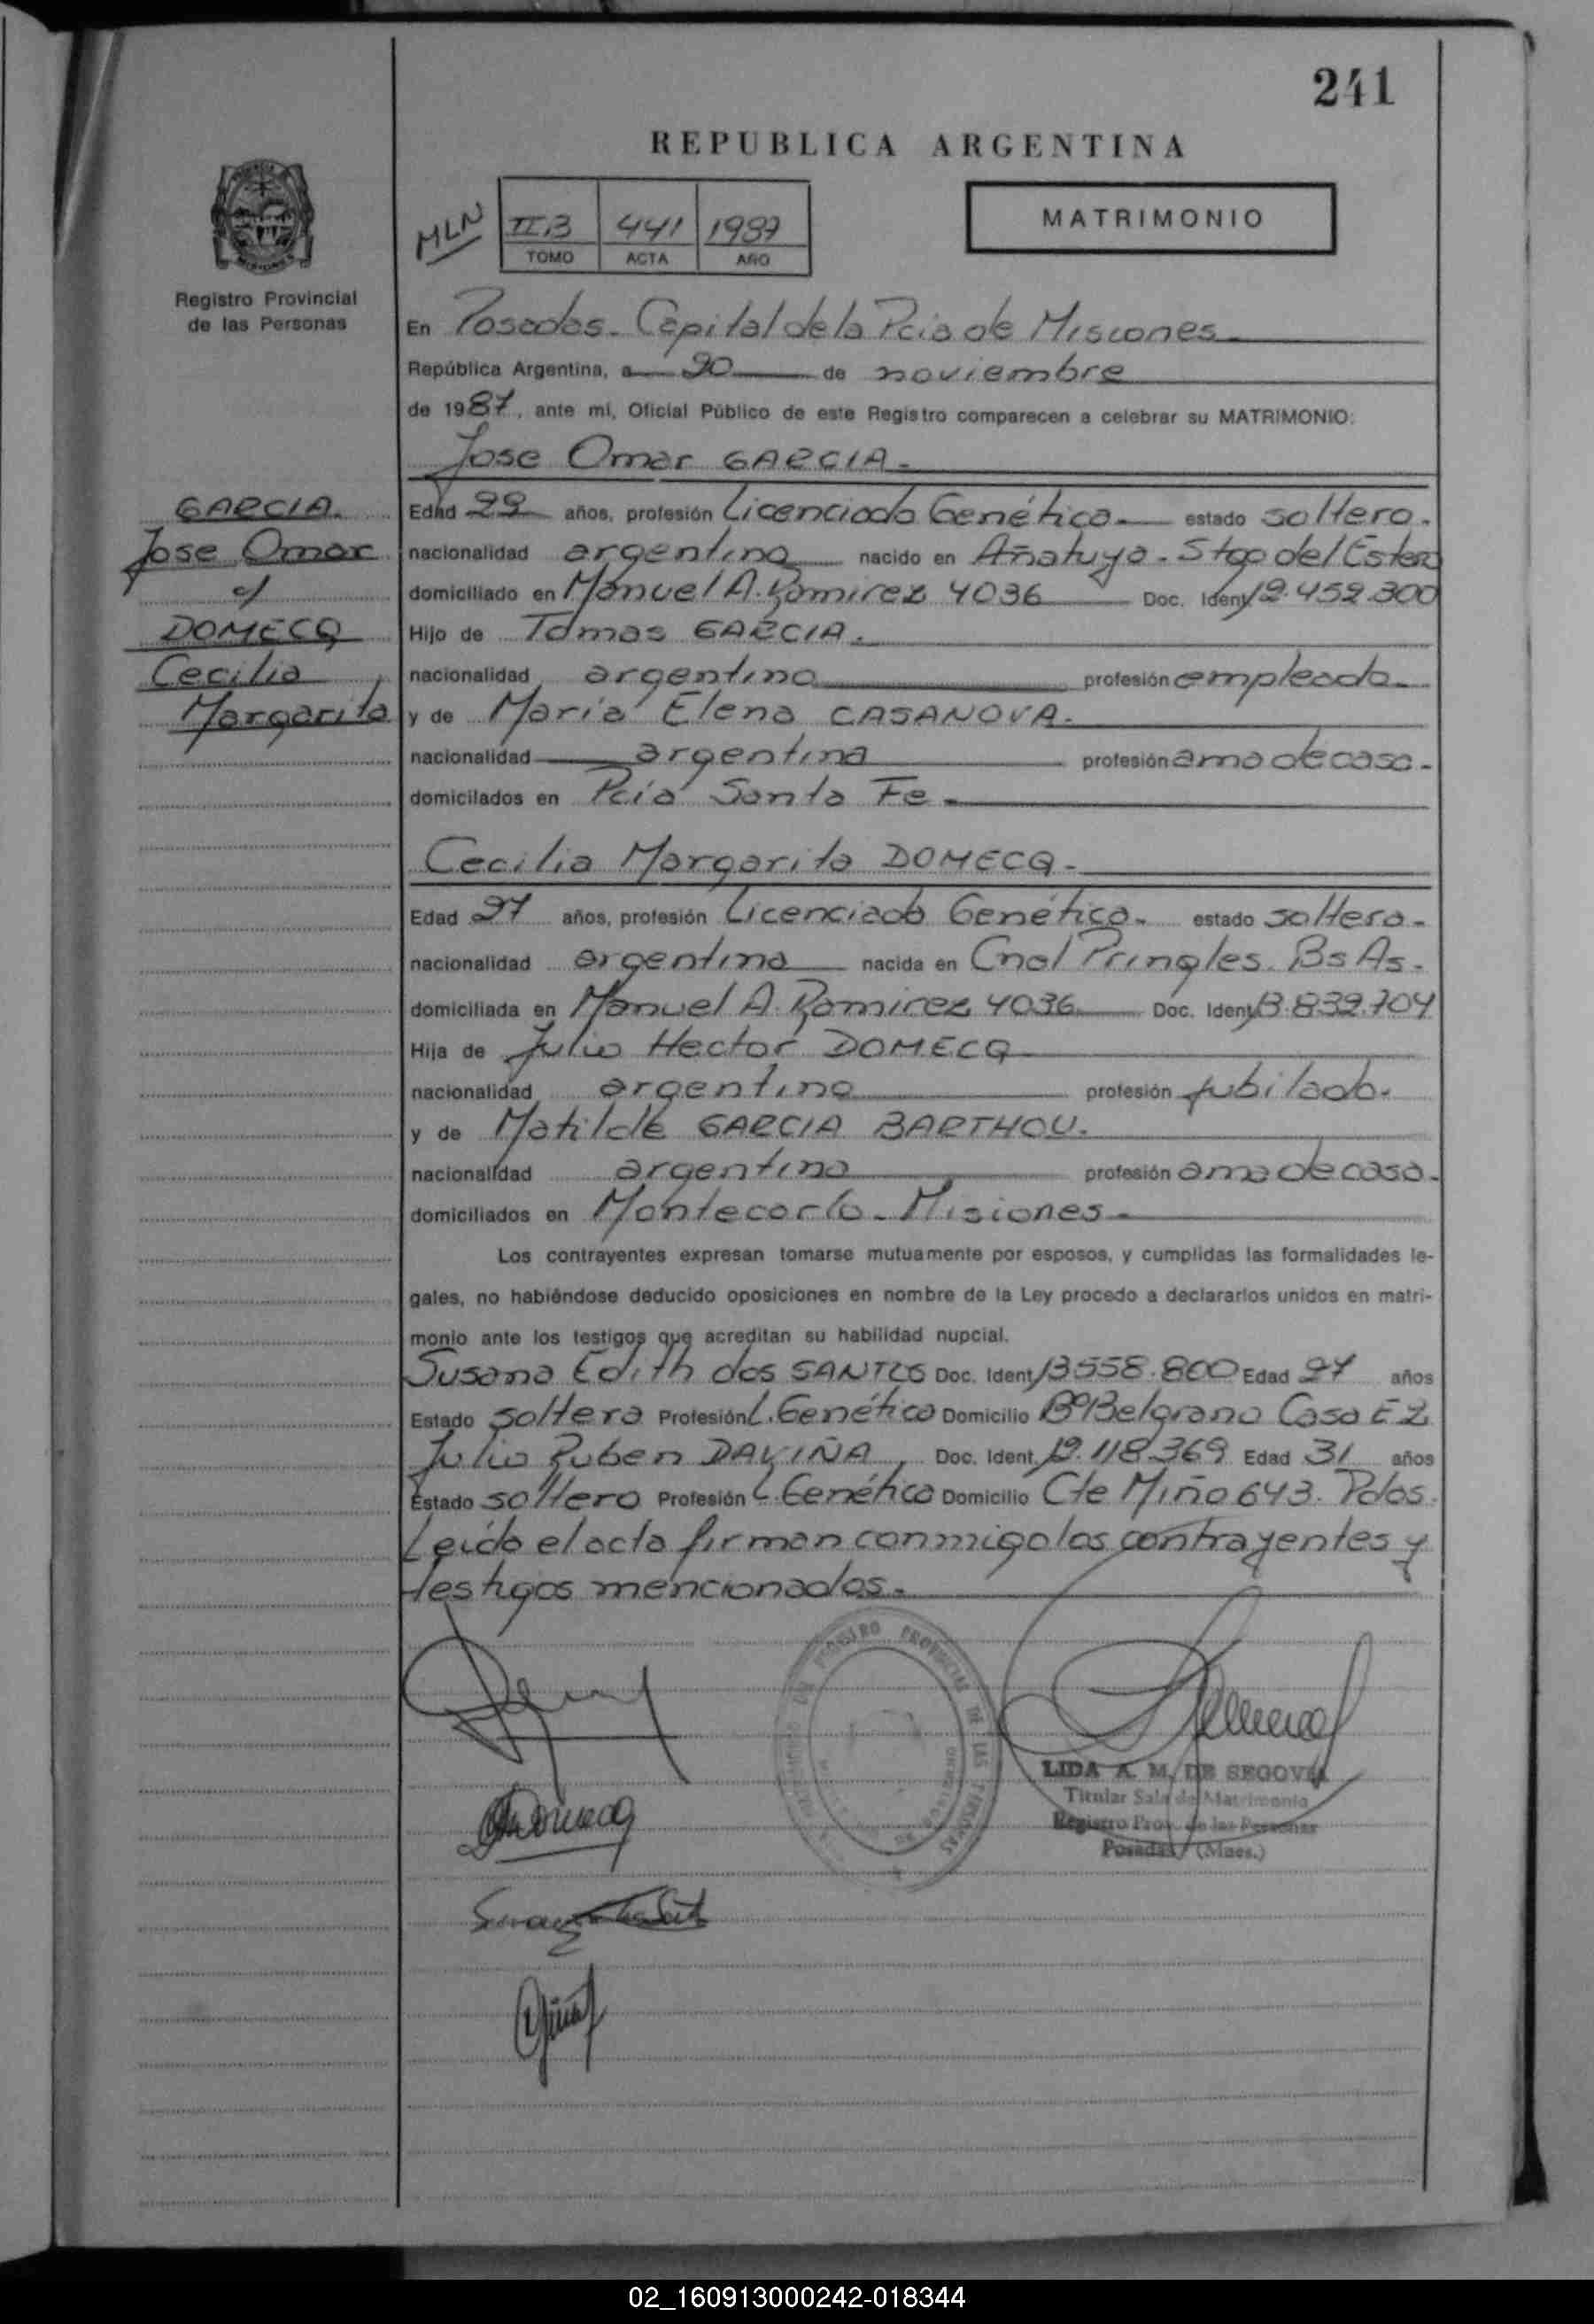 241
REPUBLICA ARGENTINA
MLN
II.B 441 1987
TOMO ACTA AÑO
MATRIMONIO
Registro Provincial
de las Personas
En Posadas - Capital de la Pcia de Misiones
República Argentina, a 20 de noviembre
de 1987, ante mí, Oficial Público de este Registro comparecen a celebrar su MATRIMONIO:
Jose Omar GARCIA.
GARCIA.
Jose Omar
c/
DOMECQ
Cecilia
Margarita
Edad 29 años, profesión Licenciado Genética estado soltero.
nacionalidad argentina nacido en Añatuya - Stgo del Estero
domiciliado en Manuel A. Ramirez 4036 Doc. Ident. 12.452.300
Hijo de Tomas GARCIA.
nacionalidad argentina profesión empleado
y de María Elena CASANOVA.
nacionalidad argentina profesión ama de casa.
domicilados en Pcia Santa Fe
Cecilia Margarita DOMECQ
Edad 27 años, profesión Licenciada Genética. estado soltera.
nacionalidad argentina nacida en Cnel Pringles. Bs As.
domiciliada en Manuel A. Ramirez 4036 Doc. Ident. 13.832.704
Hija de Julio Hector DOMECQ
nacionalidad argentina profesión jubilado.
y de Matilde GARCIA BARTHOU.
nacionalidad argentina profesión ama de casa.
domiciliados en Montecarlo - Misiones
Los contrayentes expresan tomarse mutuamente por esposos, y cumplidas las formalidades le-
gales, no habiéndose deducido oposiciones en nombre de la Ley procedo a declararlos unidos en matri-
monio ante los testigos que acreditan su habilidad nupcial.
Susana Edith dos SANTOS Doc. Ident. 13558.800 Edad 27 años
Estado soltera Profesión L. Genética Domicilio Bº Belgrano Casa E 2
Julio Ruben DAVIÑA Doc. Ident. 12.118.369 Edad 31 años
Estado soltero Profesión L. Genética Domicilio Cte Miño 643. Pdas.
Leído el acta firman conmigo los contrayentes y
testigos mencionados.
REGISTRO PROVINCIAL DE LAS PERSONAS
LIDA A. M. DE SEGOVIA
Titular Sala de Matrimonio
Registro Prov. de las Personas
Posadas (Mnes.)
Domecq
02_160913000242-018344